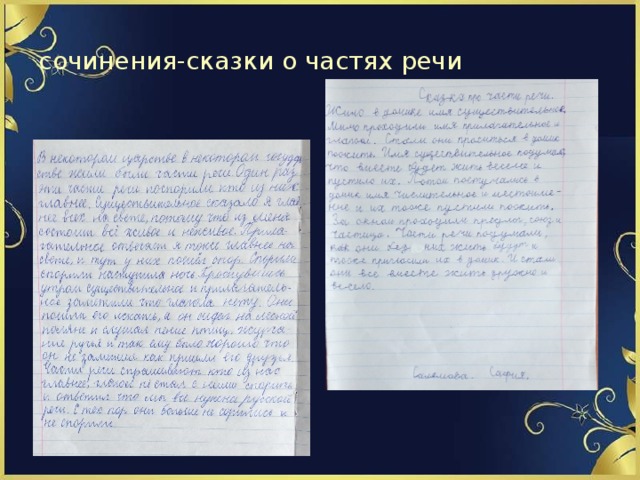 сочинения-сказки о частях речи
В некотором царстве в некотором государ
стве жили были части речи. Один раз
эти части речи поспорили кто из них
главнее. Существительное сказало я глав
нее всех на свете, потому что из меня
состоит всё живое и неживое. Прила
гательное отвечает я тоже главнее на
свете и тут у них пошёл спор. Спорили
спорили наступила ночь. Проснувшись
утром существительное и прилагатель-
ное заметили что глагола нету. Они
пошли его искать, а он сидел на лесной
поляне и слушал пение птиц, журча
ние ручья и так ему было хорошо что
он не заметил как пришли его друзья.
Части речи спрашивают кто из нас
главнее, глагол не стал с ними спорить
и ответил что мы все нужны русской
речи. С тех пор они больше не
не спорили
Сказка про части речи.
Жило в домике имя существительное,
Мимо проходили имя прилагательное и
глагол. Стали они проситься в домик
пожить. Имя существительное подумало,
что вместе будет жить веселее и
пустило их. Потом постучались в
домик имя числительное и местоиме-
ние и их тоже пустили пожить.
За окном проходили предлог, союз и
частица. Части речи подумали,
как они без них жить будут и
тоже пригласили их в домик. И стали
они все вместе жить дружно и
весело.
София.